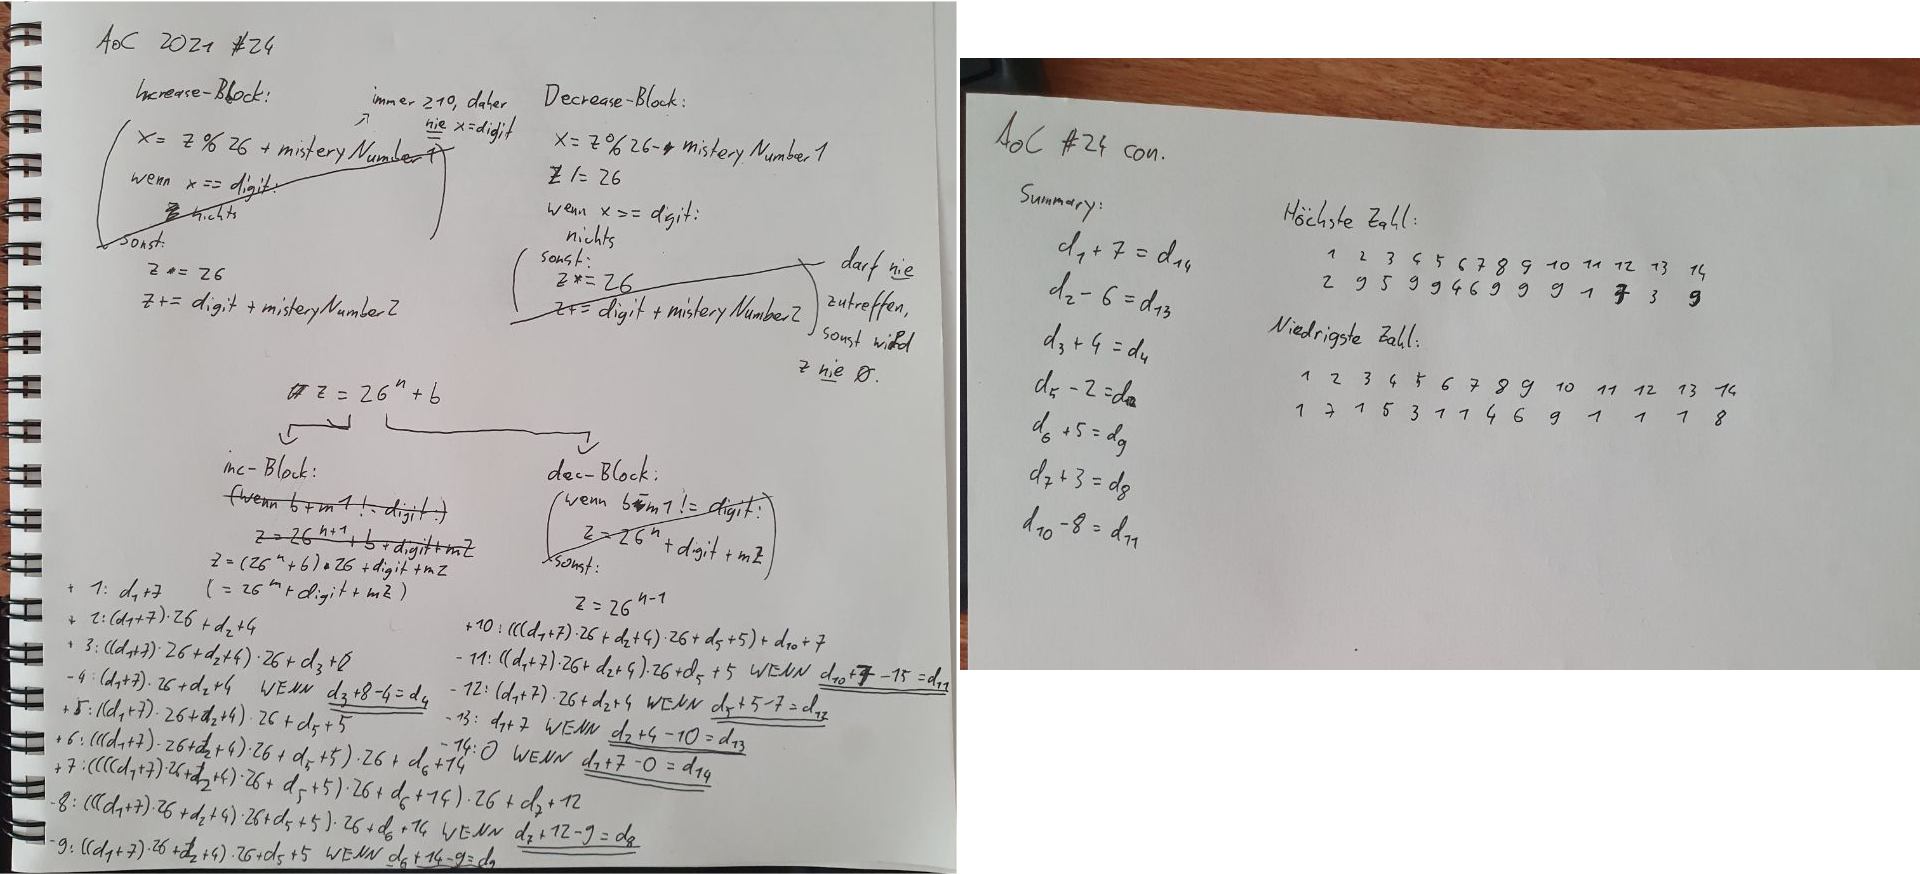 AoC 2021 #24
Increase-Block:
immer ≥10, daher
nie x=digit
x = z % 26 + misteryNumber1
wenn x == digit:
nichts
sonst:
z *= 26
z += digit + misteryNumber2
Decrease-Block:
x = z % 26 - misteryNumber1
z /= 26
wenn x == digit:
nichts
sonst:
z *= 26
z += digit + misteryNumber2
darf nie
zutreffen,
sonst wird
z nie 0.
z = 26^n + b
inc-Block:
(wenn b + m1 != digit:)
z = 26^n+1 + b + digit + m2
z = (26^n + b) · 26 + digit + m2
( = 26^m + digit + m2 )
dec-Block:
(wenn b - m1 != digit:
z = 26^n + digit + m2
sonst:
z = 26^n-1
+ 1: d1+7
+ 2: (d1+7)·26 + d2+4
+ 3: ((d1+7)·26 + d2+4)·26 + d3+8
- 4: (d1+7)·26 + d2+4 WENN d3+8-4=d4
+ 5: ((d1+7)·26 + d2+4)·26 + d5+5
+ 6: (((d1+7)·26 + d2+4)·26 + d5+5)·26 + d6+14
+ 7: ((((d1+7)·26 + d2+4)·26 + d5+5)·26 + d6+14)·26 + d7+12
- 8: (((d1+7)·26 + d2+4)·26 + d5+5)·26 + d6+14 WENN d7+12-9=d8
- 9: ((d1+7)·26 + d2+4)·26 + d5+5 WENN d6+14-9=d9
+10: (((d1+7)·26 + d2+4)·26 + d5+5) + d10+7
- 11: ((d1+7)·26 + d2+4)·26 + d5+5 WENN d10+7-15=d11
- 12: (d1+7)·26 + d2+4 WENN d5+5-7=d12
- 13: d1+7 WENN d2+4-10=d13
- 14: 0 WENN d1+7-0=d14
AoC #24 con.
Summary:
d1+7=d14
d2-6=d13
d3+4=d4
d5-2=d
d6+5=d9
d7+3=d8
d10-8=d11
Höchste Zahl:
1 2 3 4 5 6 7 8 9 10 11 12 13 14
2 9 5 9 9 4 6 9 9 9 1 7 3 9
Niedrigste Zahl:
1 2 3 4 5 6 7 8 9 10 11 12 13 14
1 7 1 5 3 1 1 4 6 9 1 1 1 8